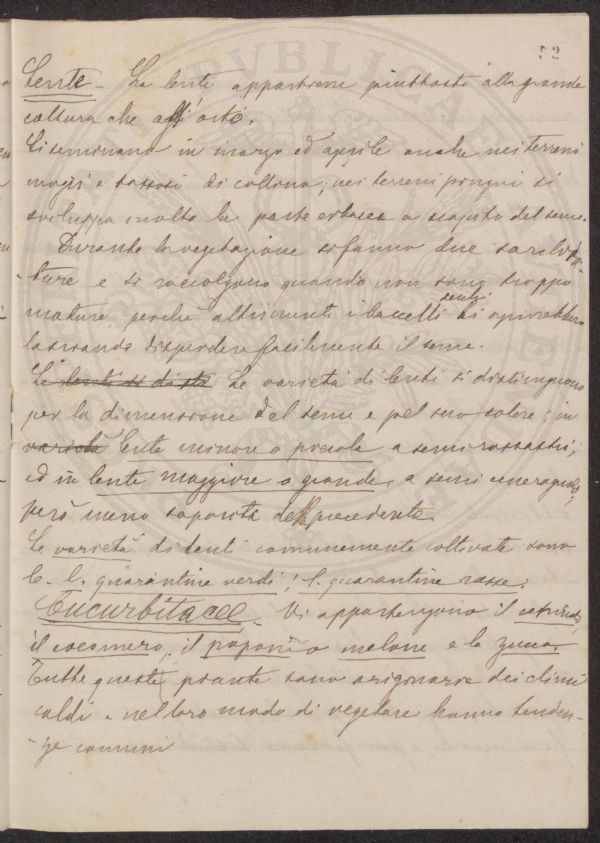 72
Lente - La lente appartiene piuttosto alla grande
coltura che all'orto.
Si seminano in marzo ed aprile anche nei terreni
magri e sassosi di collina; nei terreni pingui si
sviluppa molto la parte erbacea a scapito del seme.
Durante la vegetazione si fanno due sarchia-
ture e si raccolgono quando non sono troppo
mature, perchè altrimenti i baccelli secchi si aprirebbero
lasciando disperdere facilmente il seme.
Le lenti si di Le varietà di lenti si distinguono
per la dimensione del seme e pel suo colore; in
varietà lente minore o piccola a semi rossastri;
ed in lente maggiore o grande, a semi
però meno saporita della precedente.
Le varietà di lenti comunemente coltivate sono
le l. quarantine verdi; l. quarantine rosse.
Cucurbitacee - Vi appartengono il cetriolo,
il cocomero, il popone o melone e la zucca.
Tutte queste piante sono originarie dei climi
caldi e nel loro modo di vegetare hanno tenden-
ze comuni